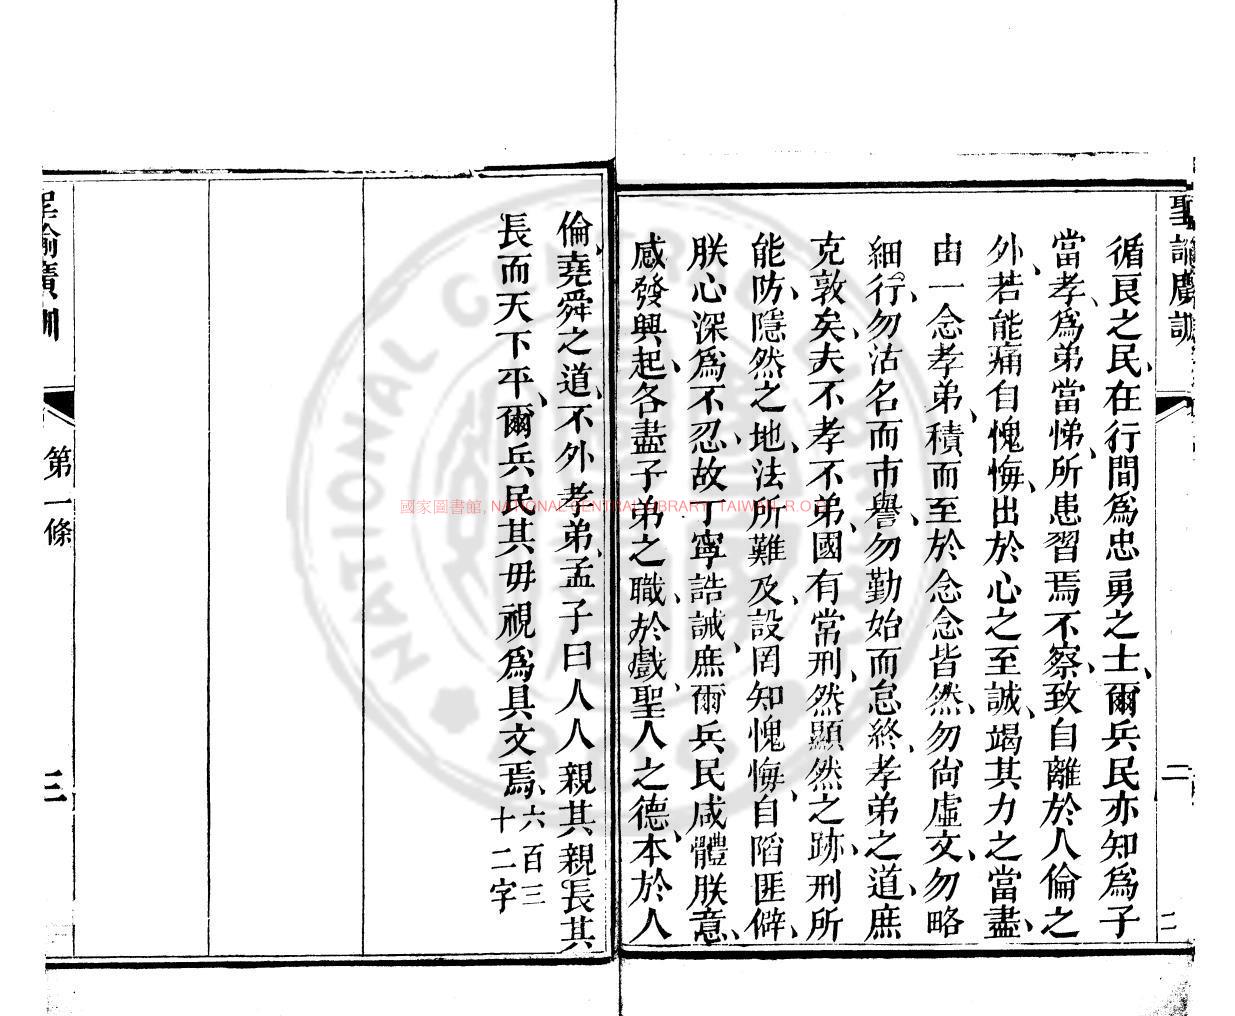 聖諭廣訓
二
循良之民、在行間爲忠勇之士、爾兵民亦知爲子
當孝、爲弟當悌、所患習焉不察、致自離於人倫之
外、若能痛自愧悔、出於心之至誠、竭其力之當盡、
由一念孝弟、積而至於念念皆然、勿尙虛文、勿略
細行、勿沽名而市譽、勿勤始而怠終、孝弟之道、庶
克敦矣、夫不孝不弟、國有常刑、然顯然之跡、刑所
能防、隱然之地、法所難及、設罔知愧悔、自陷匪僻、
朕心深爲不忍、故丁寧誥誡、庶爾兵民咸體朕意、
感發興起、各盡子弟之職、於戲、聖人之德、本於人
倫、堯舜之道、不外孝弟、孟子曰人人親其親長其
長而天下平、爾兵民其毋視爲具文焉、六百三
十二字
聖諭廣訓
第一條
三
國家圖書館, NATIONAL CENTRAL LIBRARY, TAIWAN, R.O.C.